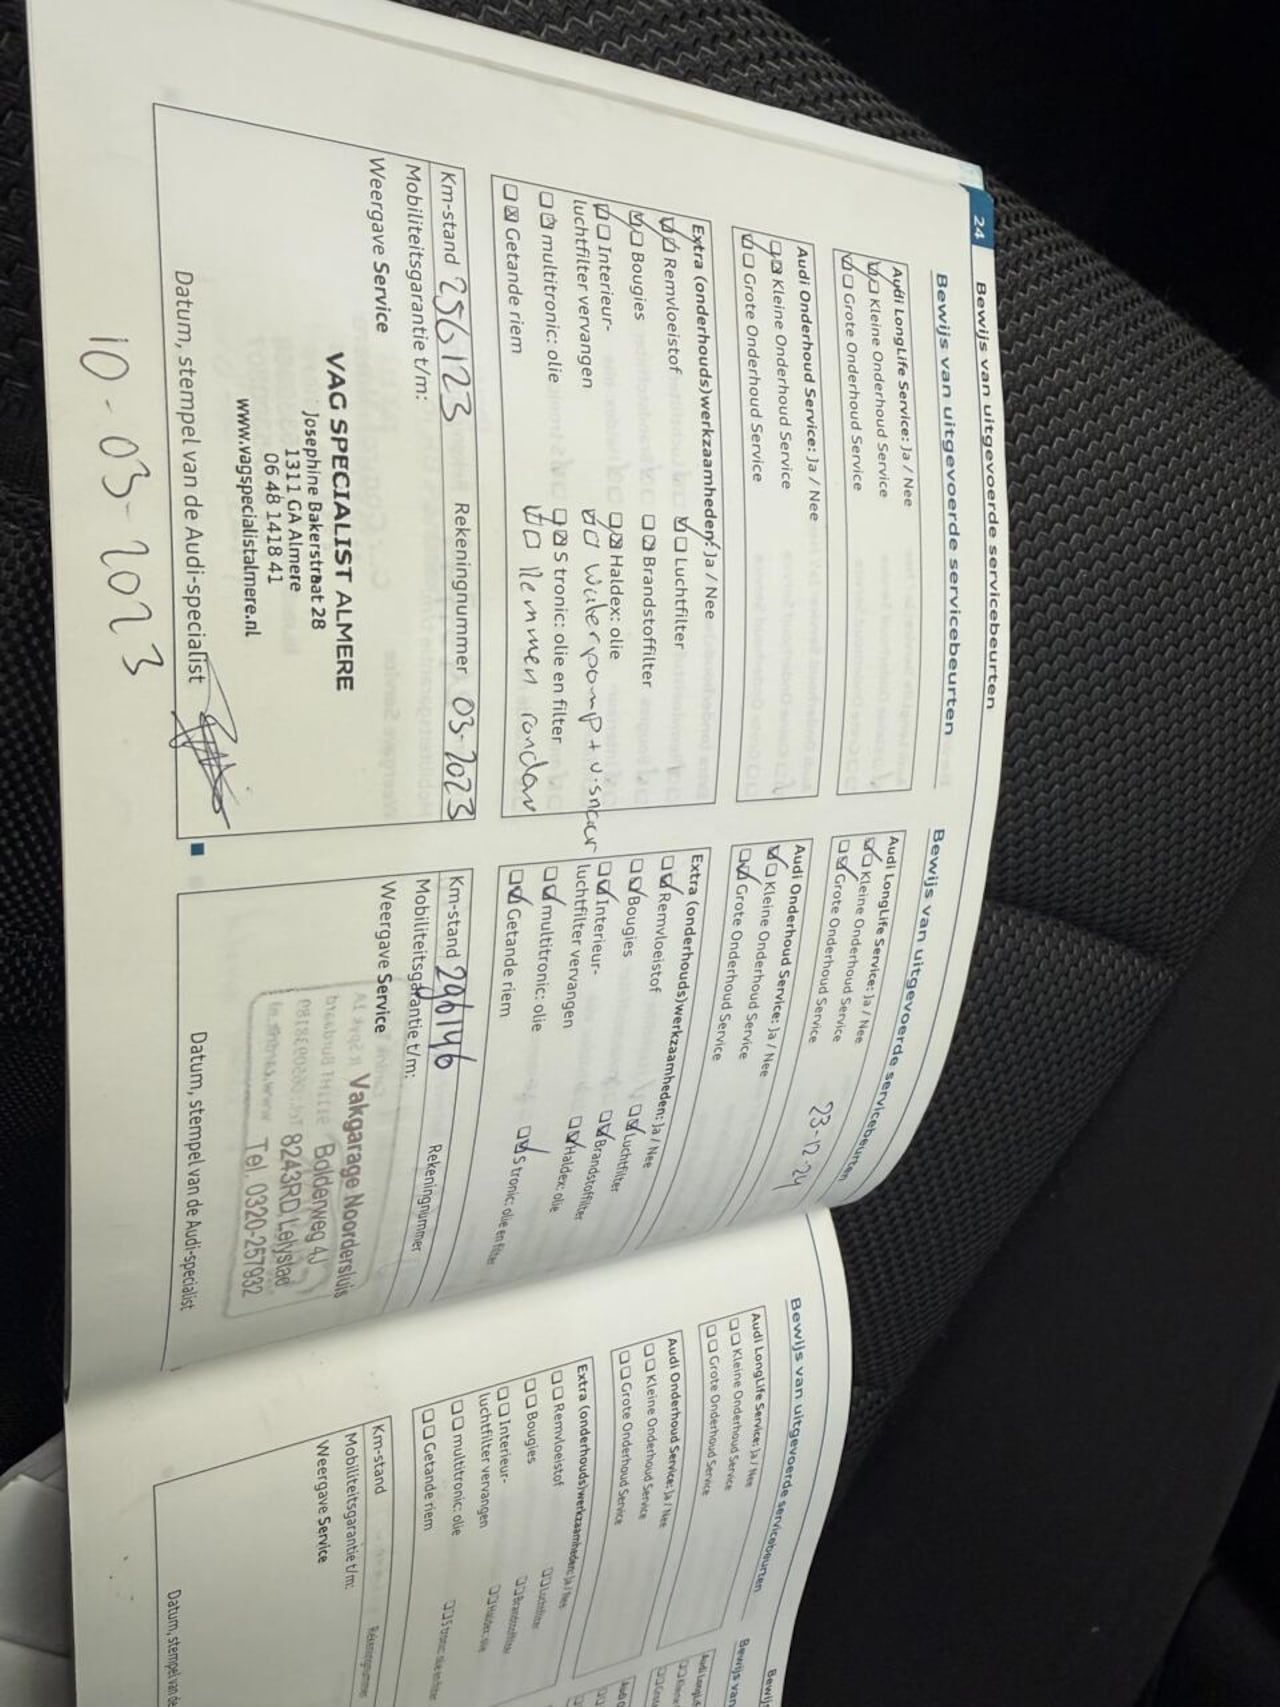 24
Bewijs van uitgevoerde servicebeurten
Bewijs van uitgevoerde servicebeurten
Audi LongLife Service: Ja / Nee
Kleine Onderhoud Service
Grote Onderhoud Service
Audi Onderhoud Service: Ja / Nee
Kleine Onderhoud Service
Grote Onderhoud Service
Extra (onderhouds)werkzaamheden: Ja / Nee
Remvloeistof
Luchtfilter
Bougies
Brandstoffilter
Interieur-
luchtfilter vervangen
Haldex: olie
Waterpomp + v.snaar
multitronic: olie
S tronic: olie en filter
Getande riem
Remmen rondom
Km-stand 256123
Rekeningnummer 03-2023
Mobiliteitsgarantie t/m:
Weergave Service
VAG SPECIALIST ALMERE
Josephine Bakerstraat 28
1311 GA Almere
06 48 1418 41
www.vagspecialistalmere.nl
Datum, stempel van de Audi-specialist
10-03-2023
Bewijs van uitgevoerde servicebeurten
Audi LongLife Service: Ja / Nee
Kleine Onderhoud Service
Grote Onderhoud Service
23-12-24
Audi Onderhoud Service: Ja / Nee
Kleine Onderhoud Service
Grote Onderhoud Service
Extra (onderhouds)werkzaamheden: Ja / Nee
Remvloeistof
Luchtfilter
Bougies
Brandstoffilter
Interieur-
luchtfilter vervangen
Haldex: olie
multitronic: olie
S tronic: olie en filter
Getande riem
Km-stand 296146
Rekeningnummer
Mobiliteitsgarantie t/m:
Weergave Service
Vakgarage Noordersluis
Bolderweg 4J
8243RD Lelystad
Tel. 0320-257932
Datum, stempel van de Audi-specialist
Bewijs van uitgevoerde servicebeurten
Audi LongLife Service: Ja / Nee
Kleine Onderhoud Service
Grote Onderhoud Service
Audi Onderhoud Service: Ja / Nee
Kleine Onderhoud Service
Grote Onderhoud Service
Extra (onderhouds)werkzaamheden: Ja / Nee
Remvloeistof
Luchtfilter
Bougies
Brandstoffilter
Interieur-
luchtfilter vervangen
Haldex: olie
multitronic: olie
S tronic: olie en filter
Getande riem
Km-stand
Rekeningnummer
Mobiliteitsgarantie t/m:
Weergave Service
Datum, stempel van de
Bewijs van